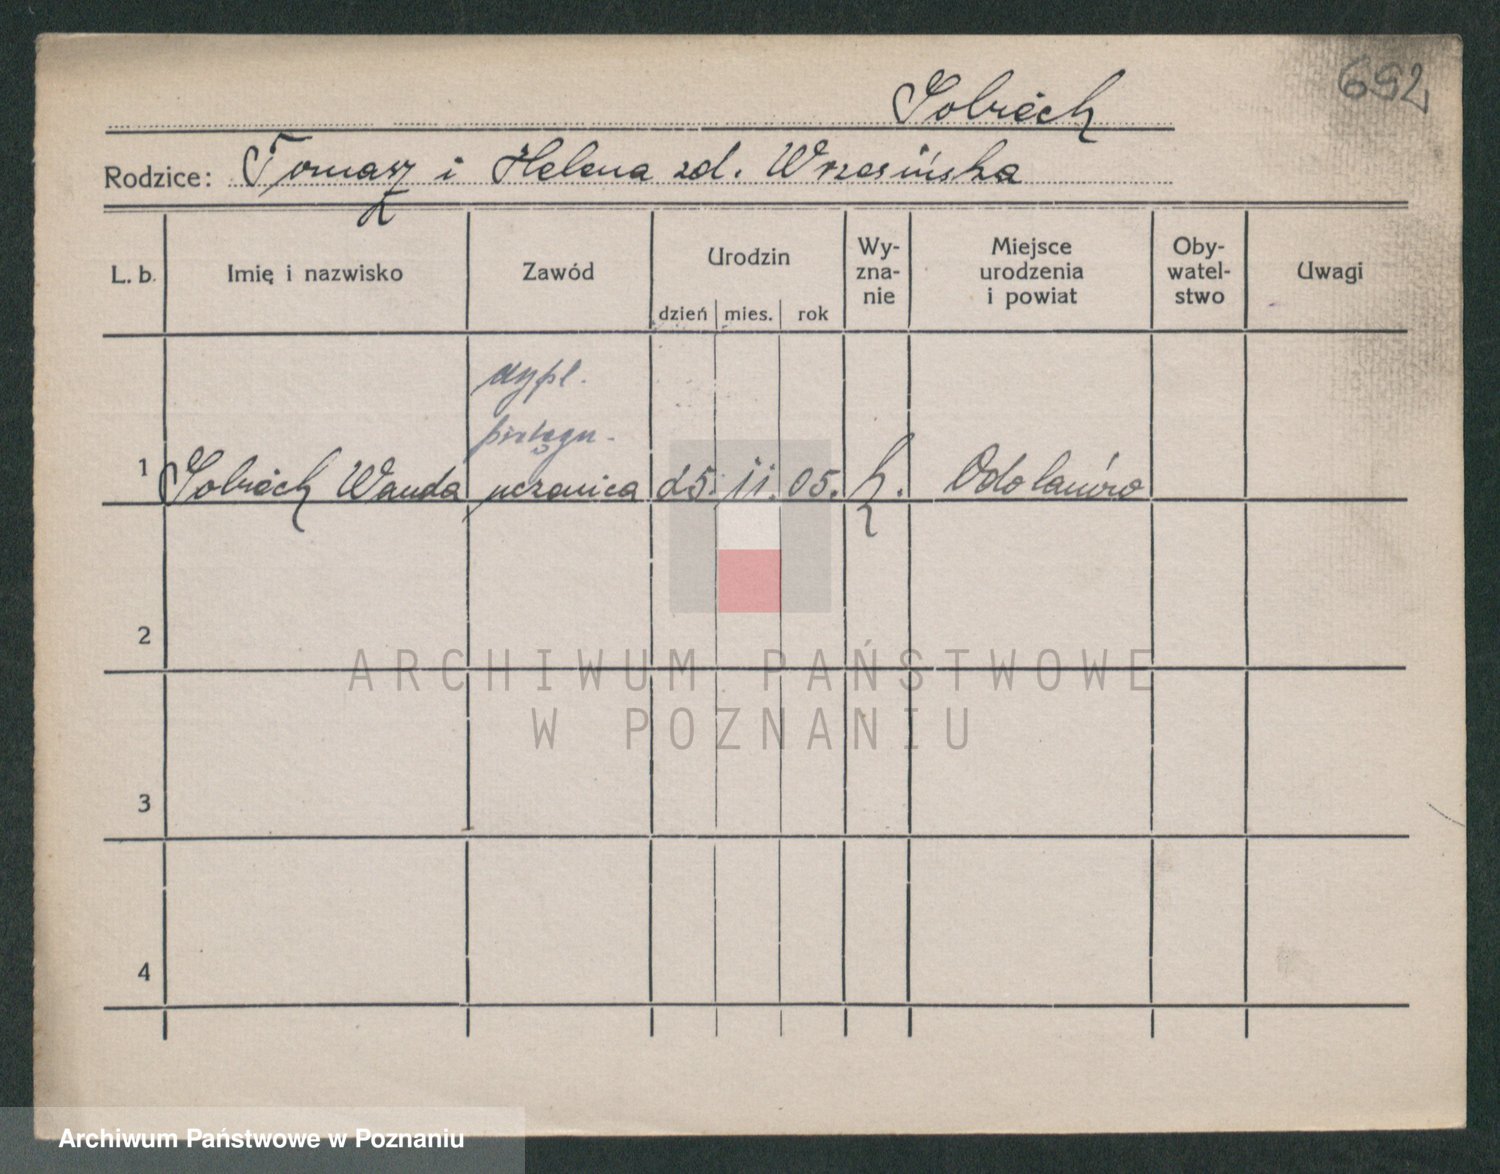 692
Sobiech
Rodzice: Tomasz i Helena zd. Wrzesińska
L. b. Imię i nazwisko Zawód Urodzin Wy- Miejsce Oby- Uwagi
zna- urodzenia watel-
nie i powiat stwo
dzień mies. rok
dypl.
pielęgn.
1 Sobiech Wanda uczenica 25. 11. 05. k. Odolanów
2
3
4
ARCHIWUM PAŃSTWOWE
W POZNANIU
Archiwum Państwowe w Poznaniu